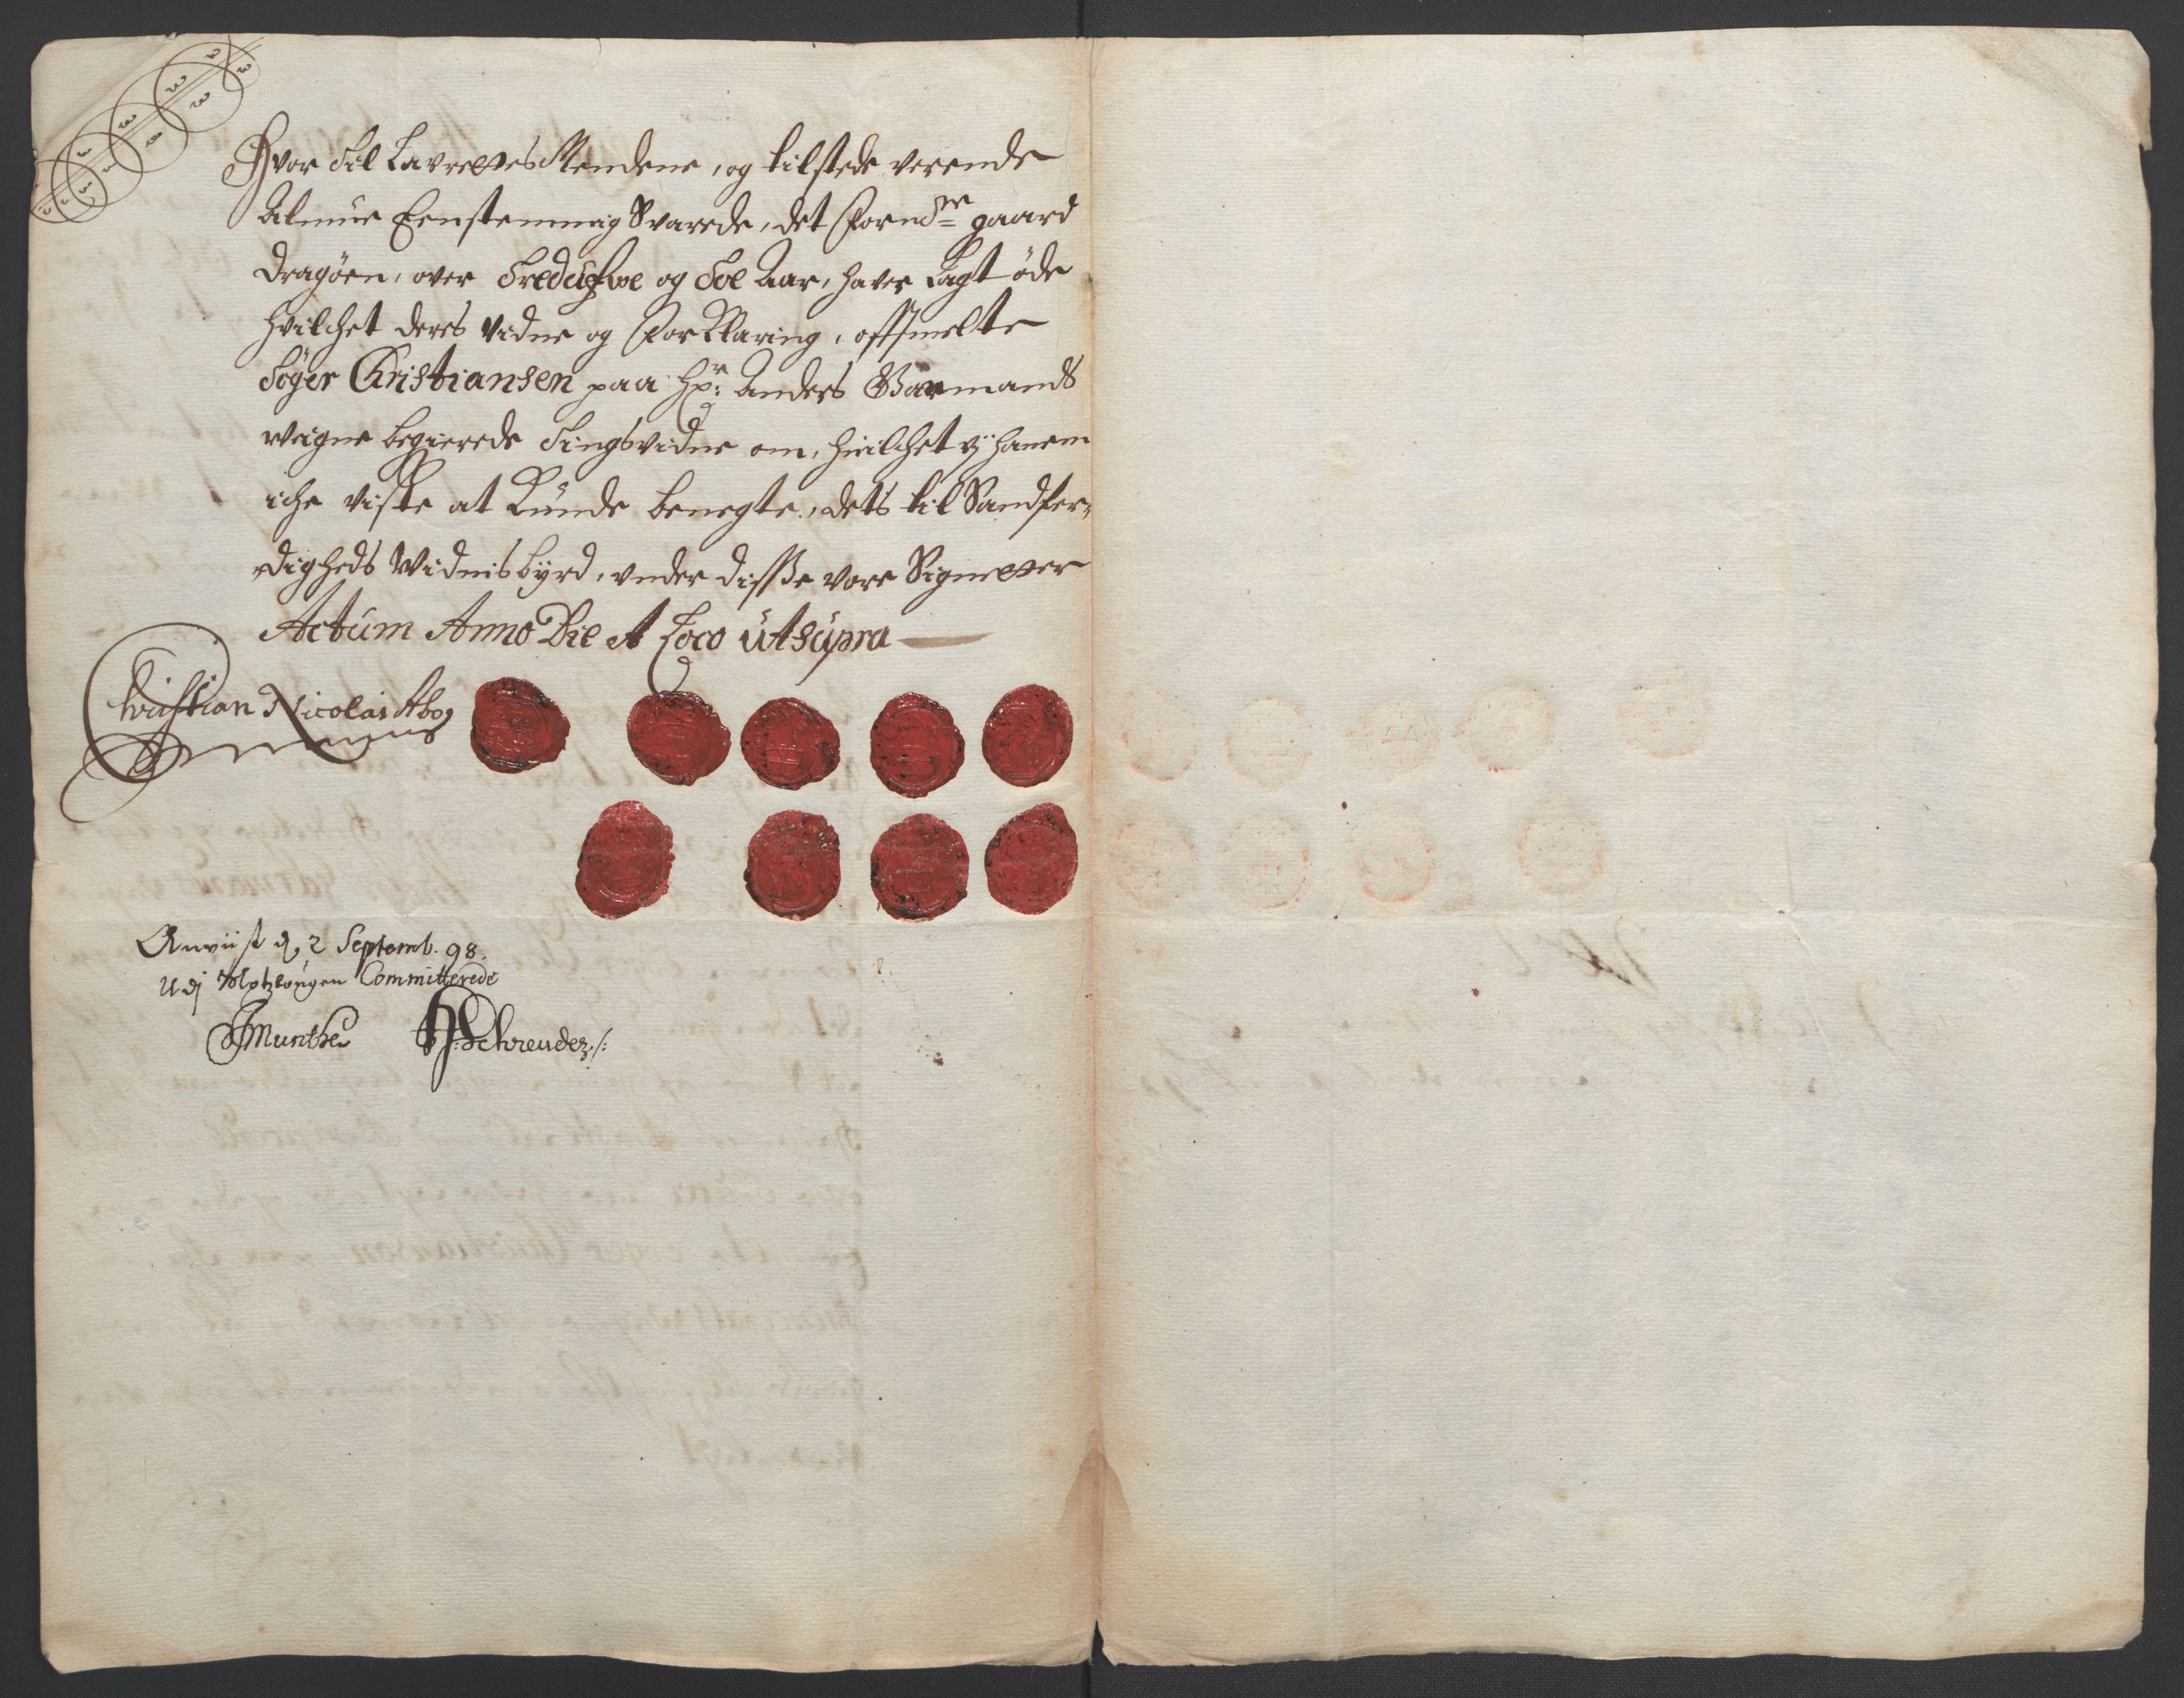 Hvor Til Lavrettes Mendene, og tilstede verende
Almue Eenstemmig Svarede, det Fornd.te gaard
Dragöen, over Tredusve og Toe Aar, haver Lagt öde
hvilchet deres vidne og Forklaring, offtmelte
Söger Christiansen paa Hr: Anders Garmands
veigne begierede Tingsvidne om, hvilchet vj hanem
iche viste at Kunde benegte, dets til Sandfer-
digheds Widnisbyrd, under disse vore Signetter
Actum Anno Die et Loco ut supra
Christian Nicolai
Anviist d. 2 Septemb. 98.
Udj Committerede
Munthe Schreuder /: